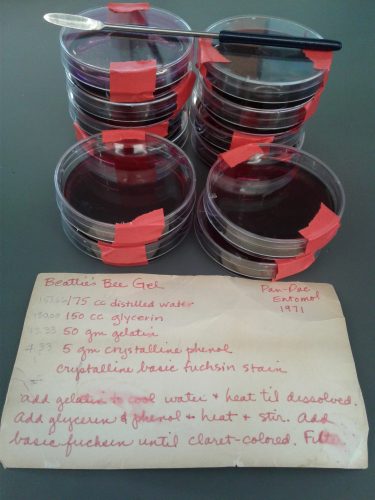 Beattie's Bee Gel
Pan-Pac
Entomol
1971
175 cc distilled water
150 cc glycerin
43.33 50 gm gelatin
4.33 5 gm crystalline phenol
crystalline basic fuchsin stain
add gelatin to cool water & heat til dissolved.
Add glycerin & phenol & heat & stir. Add
basic fuchsin until claret-colored.